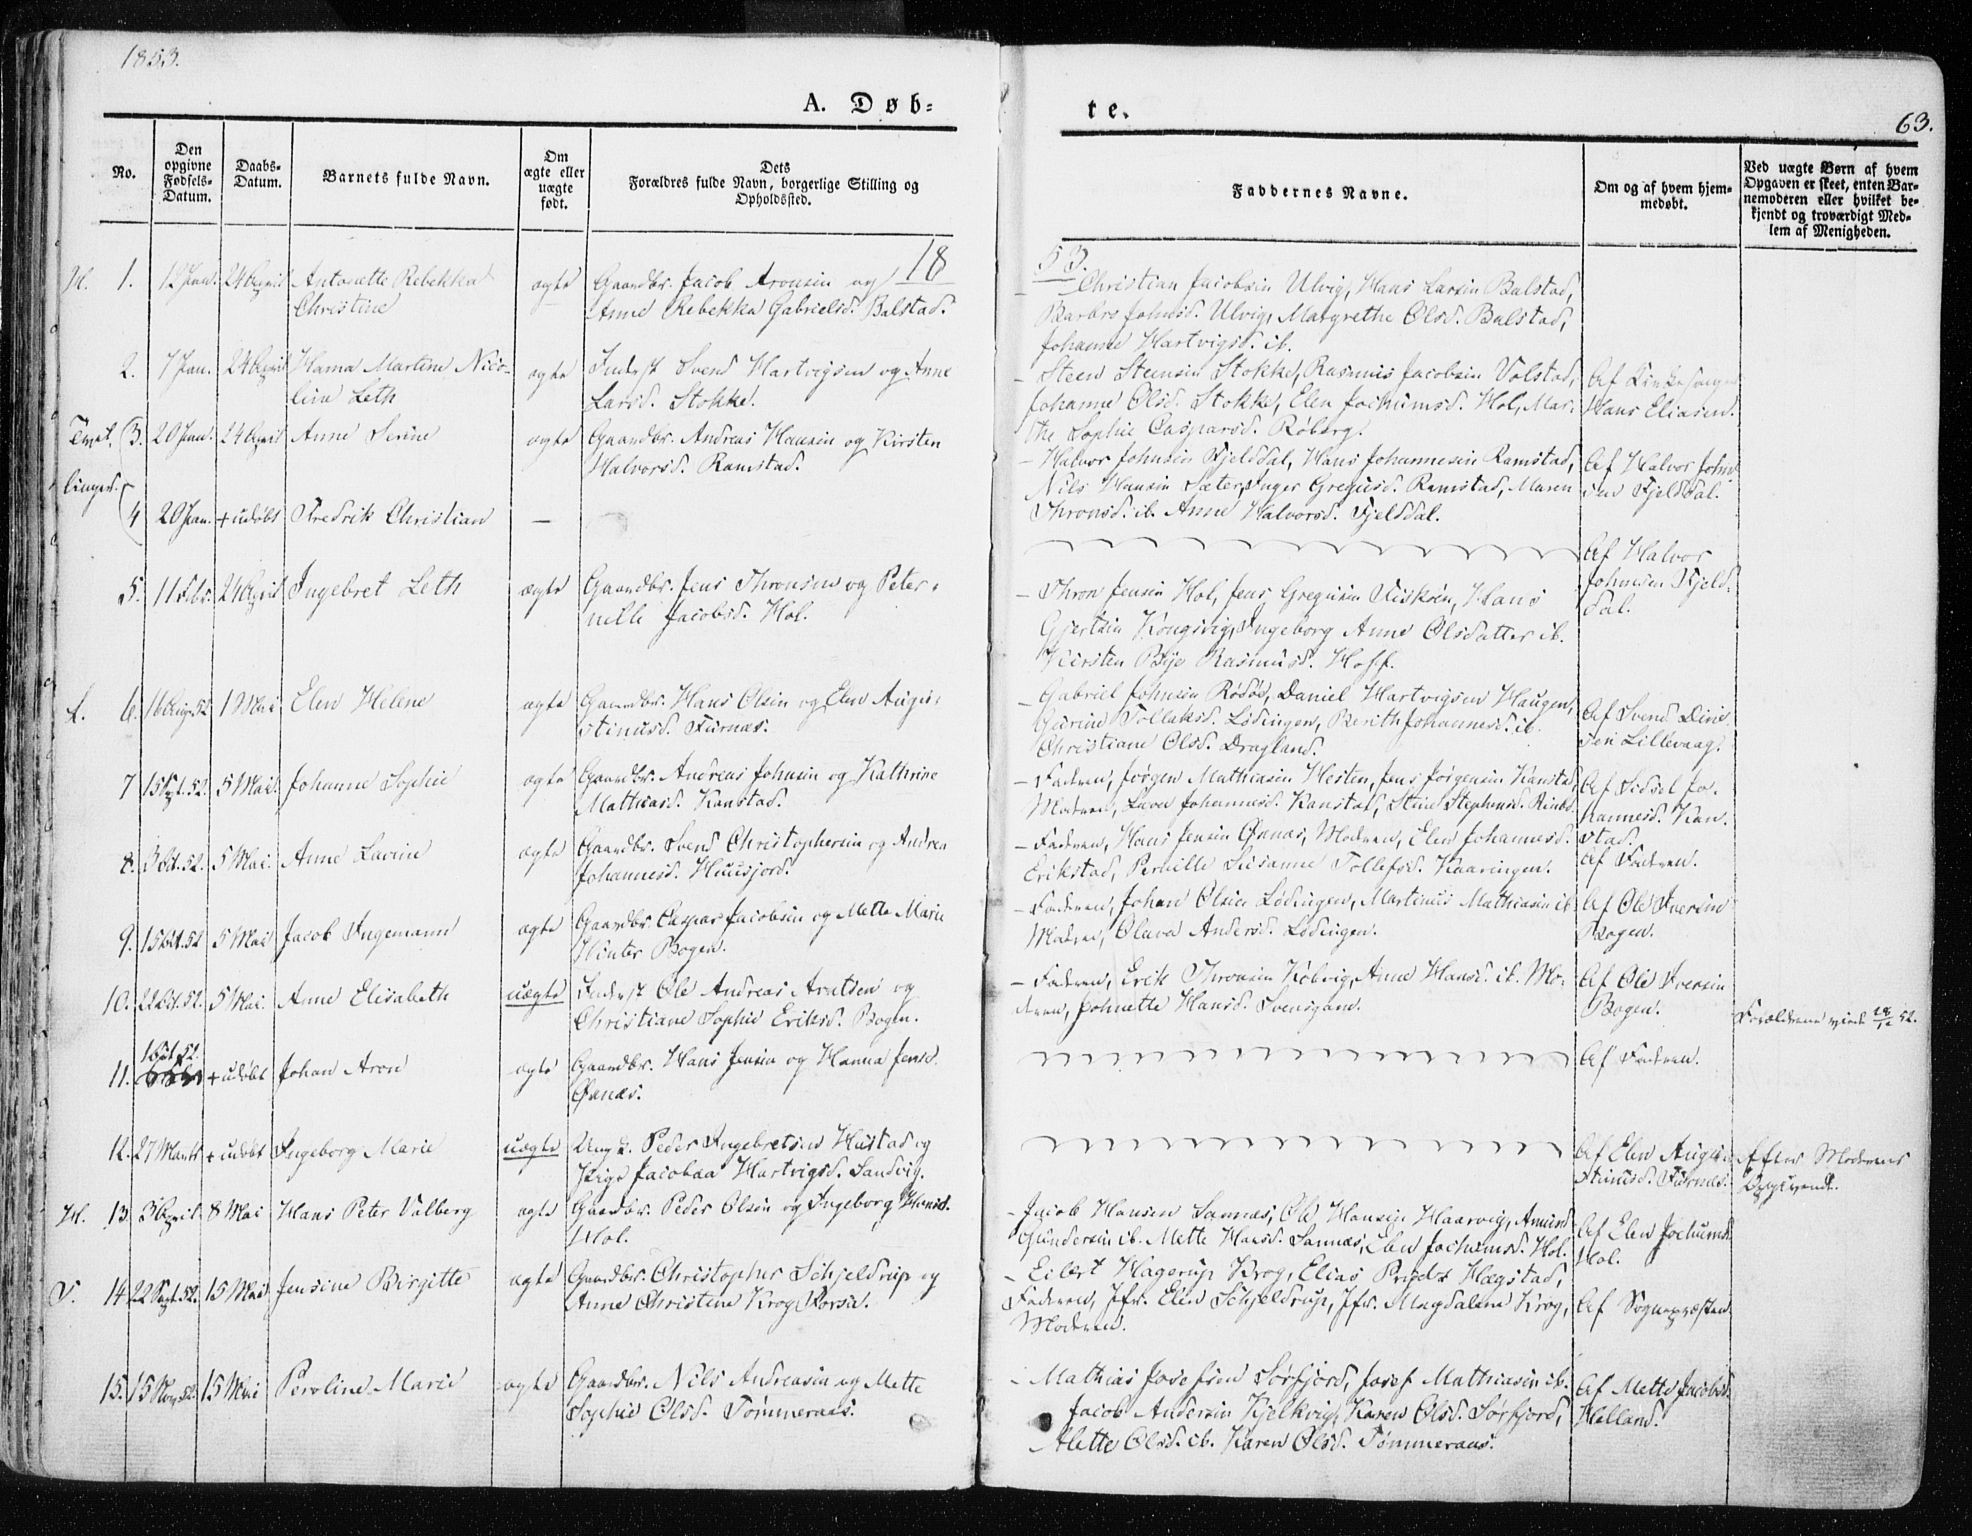 1853.
A. Døb-
te.
63.
No.
Den
opgivne
Fødsels-
Datum.
Daabs-
Datum.
Barnets fulde Navn.
Om
ægte eller
uægte
født.
Dets
Forældres fulde Navn, borgerlige Stilling og
Opholdssted.
Faddernes Navne.
Om og af hvem hjem-
medøbt.
Ved uægte Børn af hvem
Opgaven er skeet, enten Bar-
nemoderen eller hvilket be-
kjendt og troværdigt Med-
lem af Menigheden.
18
53.
H. 1. 12 Jan. 24 April Antonette Rebekka
Christine
ægte
Gaardbr. Jacob Aronsen og
Anne Rebekka Gabrielsd. Balstad.
- Christian Jacobsen Ulvig, Hans Larsen Balstad,
Barbro Johnsd. Ulvig, Margrethe Olsd. Balstad,
Johanne Hartvigsd. ib.
2. 7 Jan. 24 April Hanna Martine Nico-
line Leth
ægte
Inderst Svend Hartvigsen og Anne
Larsd. Stokke.
- Steen Steensen Stokke, Rasmus Jacobsen Volstad,
Johanne Olsd. Stokke, Elen Jochumsd. Hol, Mar-
the Sophie Caspersd. Røberg.
Af Kirkesanger
Hans Eliasen.
Tvil-
linger.
3. 20 Jan. 24 April Anne Serine
ægte
Gaardbr. Andreas Hansen og Kirsten
Halvorsd. Ramstad.
- Halvor Johnsen Fjelddal, Hans Johannesen Ramstad,
Nils Hansen Sæter, Inger Gregusd. Ramstad, Maren
Thronsd. ib. Anne Halvorsd. Fjelddal.
Af Halvor John-
sen Fjelddal.
4 20 Jan. + udøbt Fredrik Christian
—
Af Halvor
Johnsen Fjeld-
dal.
5. 11 Febr. 24 April Ingebret Leth
ægte
Gaardbr. Jens Thronsen og Peter-
nille Jacobsd. Hol.
- Thron Jensen Hol, Jens Gregusen Fiskøen, Hans
Gjertsen Kongsvig, Ingeborg Anne Olsdatter ib.
Kirsten Bye Rasmusd. Hoff.
L. 6. 16 Aug. 52 1 Mai Elen Helene
ægte
Gaardbr. Hans Olsen og Elen Augu-
stinusd. Furnæs.
- Gabriel Johnsen Rødøe, Daniel Hartvigsen Haugen,
Gurine Tollaksd. Lødingen, Berith Johannesd. ib.
Christiane Olsd. Dragland.
Af Svend
Lillevaag.
7 15 Sept. 52. 5 Mai Johanne Sophie
ægte
Gaardbr. Andreas Johnsen og Kathrine
Mathiasd. Kanstad.
- Faderen, Jørgen Mathiasen Hesten, Jens Jørgensen Kanstad,
Moderen, Lava Johannesd. Kanstad, Stine Stephensd.
Af Sidsel Jo-
hannesd. Kan-
stad.
8. 3 Oct. 52. 5 Mai. Anne Lavine
ægte
Gaardbr. Svend Christophersen og Andrea
Johannesd. Huusjord.
- Faderen, Hans Jensen Øxnæs, Moderen, Elen Johannesd.
Erikstad, Pernille Susanne Tollefsd. Kaaringen.
Af Faderen.
9. 15 Oct. 52 5 Mai Jacob Ingemann
ægte
Gaardbr. Caspar Jacobsen og Mette Marie
Winter Bogen.
- Faderen, Johan Olsen Lødingen, Martinus Mathiasen ib.
Moderen, Olava Andersd. Lødingen.
Af Ole Iversen
Bogen.
10. 22 Oct. 52. 5 Mai. Anne Elisabeth
uægte
Inderst Ole Andreas Arntsen og
Christiane Sophie Eriksd. Bogen.
- Faderen, Erik Thronsen Kobvig, Anne Hansd. ib. Mo-
deren, Johnette Hansd. Svensgam.
Af Ole Iversen
Bogen.
Forældrene viede 52.
11. 16 Oct. 52. + udøbt Johan Aron
ægte
Gaardbr. Hans Jensen og Hanna Jensd.
Øxnæs.
Af Faderen.
12. 27 Marts + udøbt Ingeborg Marie
uægte
Ungk. Peder Ingebretsen Hustad og
Pige Jacobea Hartvigsd. Sandvig.
Af Elen Augu-
stinusd. Furnæs.
Efter Moderens
Opgivende.
H. 13. 3 April. 8 Mai Hans Peter Valberg
ægte
Gaardbr. Peder Olsen og Ingeborg Hansd.
Hol.
- Jacob Hansen Sannæs, Ole Hansen Haarvig, Amund
Gundersen ib. Mette Hansd. Sannæs, Elen Jochumsd. Hol.
Af Elen Jochumsd.
Hol.
14 22 Sept. 52. 15 Mai Jensine Birgitte
ægte
Gaardbr. Christopher Schjeldrup og
Anne Christine Krog Forsaa.
- Eilert Hagerup Krog, Elias Hægstad,
Faderen, Jfr. Elen Schjeldrup, Jfr. Magdalena Krog,
Moderen.
Af Sognepræsten.
15. 15 Nov. 52. 15 Mai Peroline Marie
ægte
Gaardbr. Nils Andreasen og Mette
Sophie Olsd. Tømmeraas.
- Mathias Josefsen Sørfjord, Josef Mathiasen ib.
Jacob Andersen Kjelkvig, Karen Olsd. Sørfjord,
Alette Olsd. ib. Karen Olsd. Tømmeraas.
Af Mette Jacobsd.
Helland.